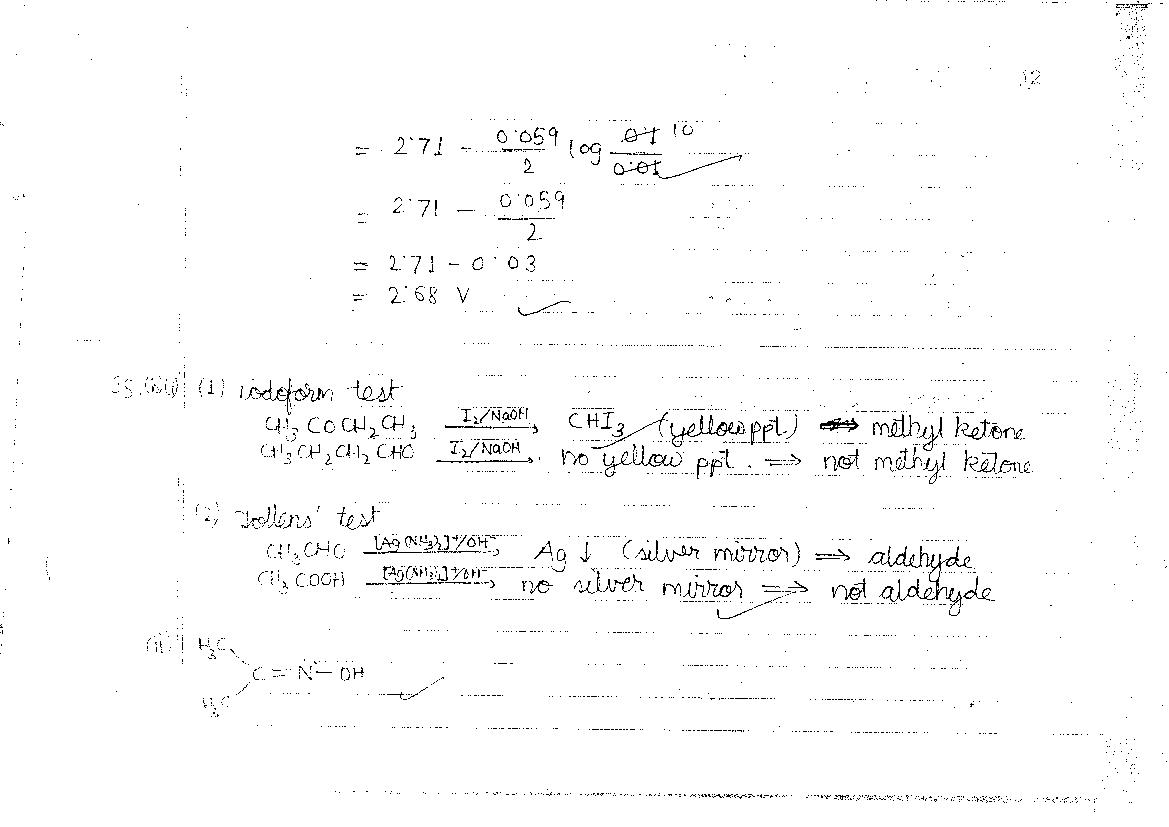 12
= 2.71 - 0.059/2 log 0.1/0.01 10
= 2.71 - 0.059/2
= 2.71 - 0.03
= 2.68 V
(1) iodoform test
CH3COCH2CH3 I2/NaOH → CHI3 (yellow ppt.) ⇒ methyl ketone
CH3CH2CH2CHO I2/NaOH → no yellow ppt. ⇒ not methyl ketone
(2) Tollens' test
CH3CHO [Ag(NH3)2]+/OH- → Ag ↓ (silver mirror) ⇒ aldehyde
CH3COOH [Ag(NH3)2]+/OH- → no silver mirror ⇒ not aldehyde
(ii) H3C
C = N - OH
H3C